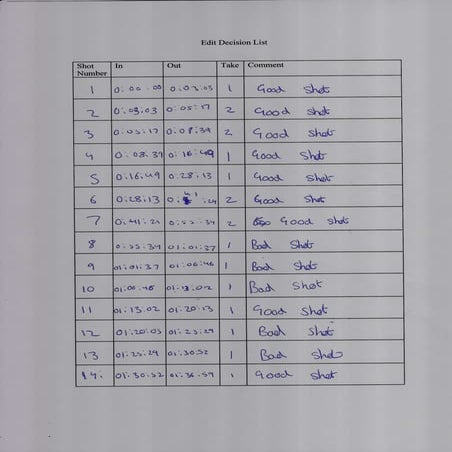 Edit Decision List
Shot Number In Out Take Comment
1 0:00:00 0:03:03 1 Good Shot
2 0:03:03 0:05:17 2 Good Shot
3 0:05:17 0:08:39 2 Good Shot
4 0:08:39 0:16:49 1 Good Shot
5 0:16:49 0:28:13 1 Good Shot
6 0:28:13 2 Good Shot
7 2 Good Shot
8 01:01:37 1 Bad Shot
9 01:01:37 01:06:46 1 Bad Shot
10 1 Bad Shot
11 01:13.02 01:20:13 1 Good Shot
12 01:20:03 1 Bad Shot
13 01:30:52 1 Bad Shot
14. 01:30:52 1 Good Shot